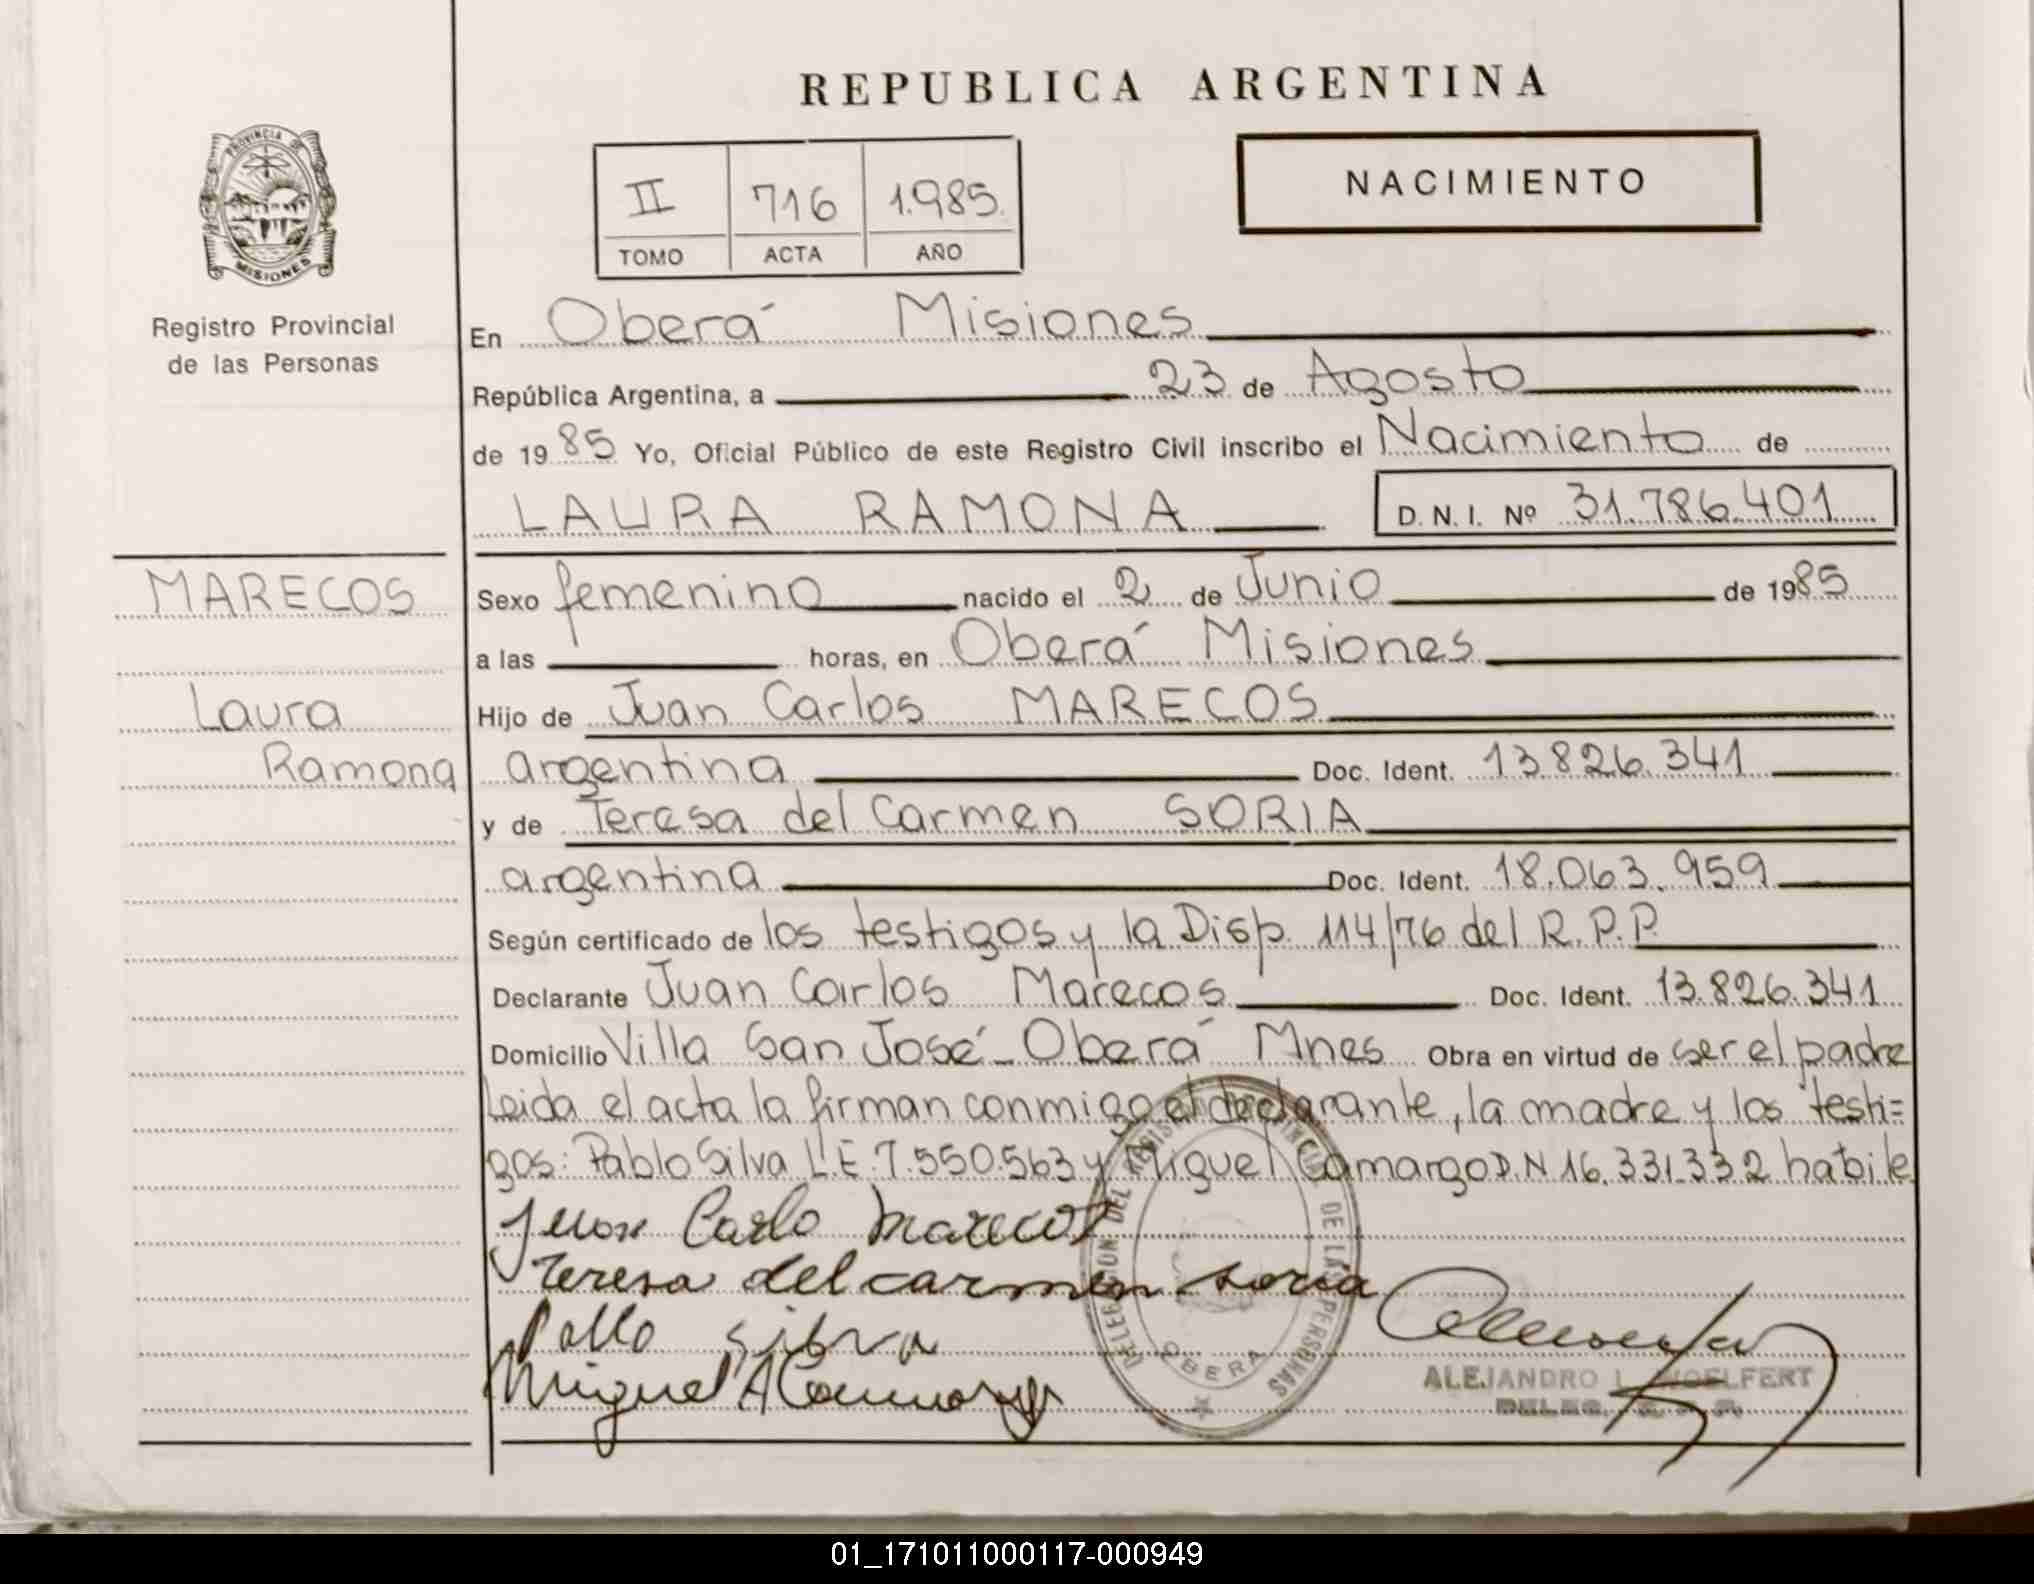 REPUBLICA ARGENTINA
PROVINCIA DE MISIONES
Registro Provincial
de las Personas
II 716 1.985.
TOMO ACTA AÑO
NACIMIENTO
En Oberá Misiones
República Argentina, a 23 de Agosto
de 19 85 Yo, Oficial Público de este Registro Civil inscribo el Nacimiento de
LAURA RAMONA D.N.I. Nº 31.786.401
MARECOS
Laura
Ramona
Sexo femenino nacido el 2 de Junio de 1985
a las horas, en Oberá Misiones
Hijo de Juan Carlos MARECOS
argentina Doc. Ident. 13.826.341
y de Teresa del Carmen SORIA
argentina Doc. Ident. 18.063.959
Según certificado de los testigos y la Disp. 114/76 del R.P.P.
Declarante Juan Carlos Marecos Doc. Ident. 13.826.341
Domicilio Villa San José - Oberá Mnes Obra en virtud de ser el padre
Leida el acta la firman conmigo el declarante, la madre y los testi=
gos: Pablo Silva L.E.7.550.563 y Miguel Camargo D.N 16.331.332 habile
Juan Carlo Marecos
Teresa del carmen soria
Pablo silva
Miguel A Camargo
DELEGACION DEL REGISTRO PROVINCIAL DE LAS PERSONAS
OBERA
ALEJANDRO L. WOELFERT
01_171011000117-000949